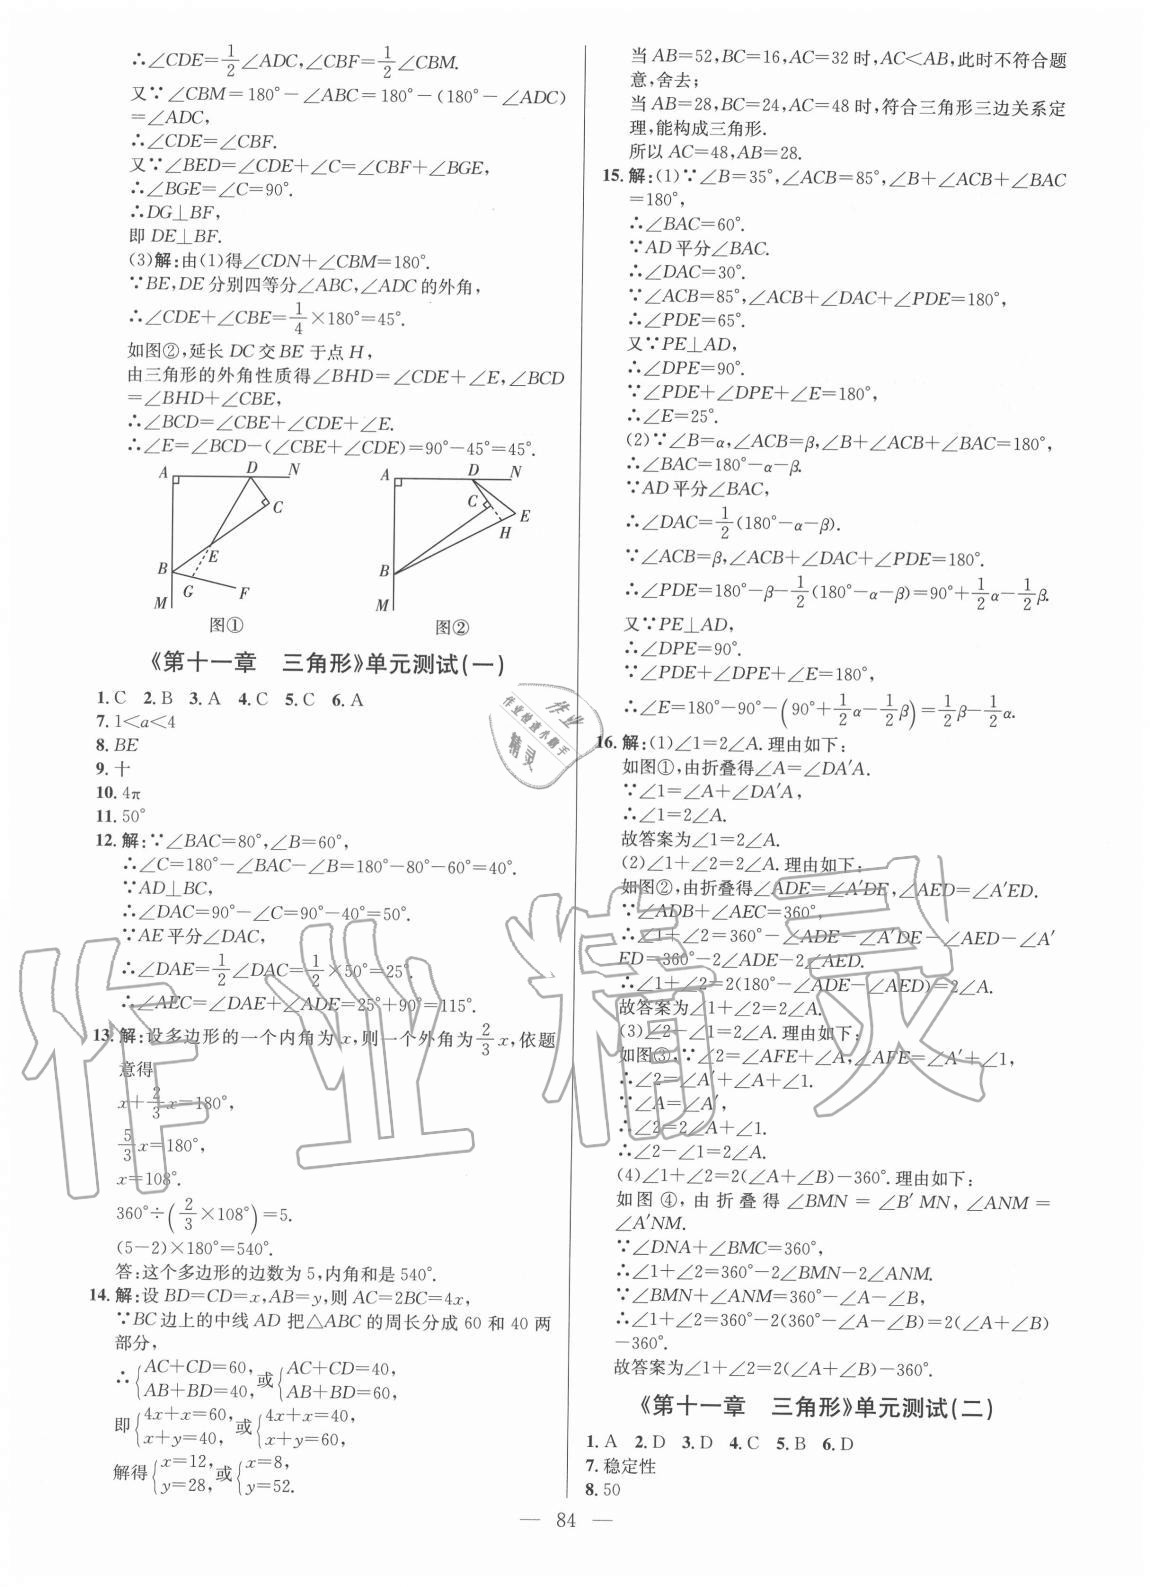 ∴∠CDE=1/2∠ADC,∠CBF=1/2∠CBM.
又∵∠CBM=180°-∠ABC=180°-(180°-∠ADC)
=∠ADC,
∴∠CDE=∠CBF.
又∵∠BED=∠CDE+∠C=∠CBF+∠BGE,
∴∠BGE=∠C=90°.
∴DG⊥BF,
即 DE⊥BF.
(3)解:由(1)得∠CDN+∠CBM=180°.
∵BE,DE 分别四等分∠ABC,∠ADC 的外角,
∴∠CDE+∠CBE=1/4×180°=45°.
如图②,延长 DC 交 BE 于点 H,
由三角形的外角性质得∠BHD=∠CDE+∠E,∠BCD
=∠BHD+∠CBE,
∴∠BCD=∠CBE+∠CDE+∠E.
∴∠E=∠BCD-(∠CBE+∠CDE)=90°-45°=45°.
A D N
C
E
B
G F
M
图①
A D N
C
E
H
B
M
图②
《第十一章 三角形》单元测试(一)
1.C 2.B 3.A 4.C 5.C 6.A
7.1<a<4
8.BE
9.十
10.4π
11.50°
12.解:∵∠BAC=80°,∠B=60°,
∴∠C=180°-∠BAC-∠B=180°-80°-60°=40°.
∵AD⊥BC,
∴∠DAC=90°-∠C=90°-40°=50°.
∵AE 平分∠DAC,
∴∠DAE=1/2∠DAC=1/2×50°=25°.
∴∠AEC=∠DAE+∠ADE=25°+90°=115°.
13.解:设多边形的一个内角为 x,则一个外角为 2/3 x,依题
意得
x+2/3 x=180°,
5/3 x=180°,
x=108°.
360°÷(2/3×108°)=5.
(5-2)×180°=540°.
答:这个多边形的边数为 5,内角和是 540°.
14.解:设 BD=CD=x,AB=y,则 AC=2BC=4x,
∵BC 边上的中线 AD 把△ABC 的周长分成 60 和 40 两
部分,
∴{AC+CD=60, AB+BD=40, 或{AC+CD=40, AB+BD=60,
即{4x+x=60, x+y=40, 或{4x+x=40, x+y=60,
解得{x=12, y=28, 或{x=8, y=52.
当 AB=52,BC=16,AC=32 时,AC<AB,此时不符合题
意,舍去;
当 AB=28,BC=24,AC=48 时,符合三角形三边关系定
理,能构成三角形.
所以 AC=48,AB=28.
15.解:(1)∵∠B=35°,∠ACB=85°,∠B+∠ACB+∠BAC
=180°,
∴∠BAC=60°.
∵AD 平分∠BAC.
∴∠DAC=30°.
∵∠ACB=85°,∠ACB+∠DAC+∠PDE=180°,
∴∠PDE=65°.
又∵PE⊥AD,
∴∠DPE=90°.
∵∠PDE+∠DPE+∠E=180°,
∴∠E=25°.
(2)∵∠B=α,∠ACB=β,∠B+∠ACB+∠BAC=180°,
∴∠BAC=180°-α-β.
∵AD 平分∠BAC,
∴∠DAC=1/2(180°-α-β).
∵∠ACB=β,∠ACB+∠DAC+∠PDE=180°.
∴∠PDE=180°-β-1/2(180°-α-β)=90°+1/2α-1/2β.
又∵PE⊥AD,
∴∠DPE=90°.
∵∠PDE+∠DPE+∠E=180°,
∴∠E=180°-90°-(90°+1/2α-1/2β)=1/2β-1/2α.
16.解:(1)∠1=2∠A. 理由如下:
如图①,由折叠得∠A=∠DA′A.
∵∠1=∠A+∠DA′A,
∴∠1=2∠A.
故答案为∠1=2∠A.
(2)∠1+∠2=2∠A. 理由如下:
如图②,由折叠得∠ADE=∠A′DE,∠AED=∠A′ED.
∵∠ADB+∠AEC=360°,
∴∠1+∠2=360°-∠ADE-∠A′DE-∠AED-∠A′
ED=360°-2∠ADE-2∠AED.
∴∠1+∠2=2(180°-∠ADE-∠AED)=2∠A.
故答案为∠1+∠2=2∠A.
(3)∠2-∠1=2∠A. 理由如下:
如图③,∵∠2=∠AFE+∠A,∠AFE=∠A′+∠1,
∴∠2=∠A′+∠A+∠1.
∵∠A=∠A′,
∴∠2=2∠A+∠1.
∴∠2-∠1=2∠A.
(4)∠1+∠2=2(∠A+∠B)-360°. 理由如下:
如图④,由折叠得∠BMN=∠B′MN,∠ANM=
∠A′NM.
∵∠DNA+∠BMC=360°,
∴∠1+∠2=360°-2∠BMN-2∠ANM.
∵∠BMN+∠ANM=360°-∠A-∠B,
∴∠1+∠2=360°-2(360°-∠A-∠B)=2(∠A+∠B)
-360°.
故答案为∠1+∠2=2(∠A+∠B)-360°.
《第十一章 三角形》单元测试(二)
1.A 2.D 3.D 4.C 5.B 6.D
7.稳定性
8.50
— 84 —
作业精灵